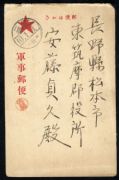 郵便はかき
軍事郵便
長野縣松本市
東筑摩郡役所
安藤貞久殿